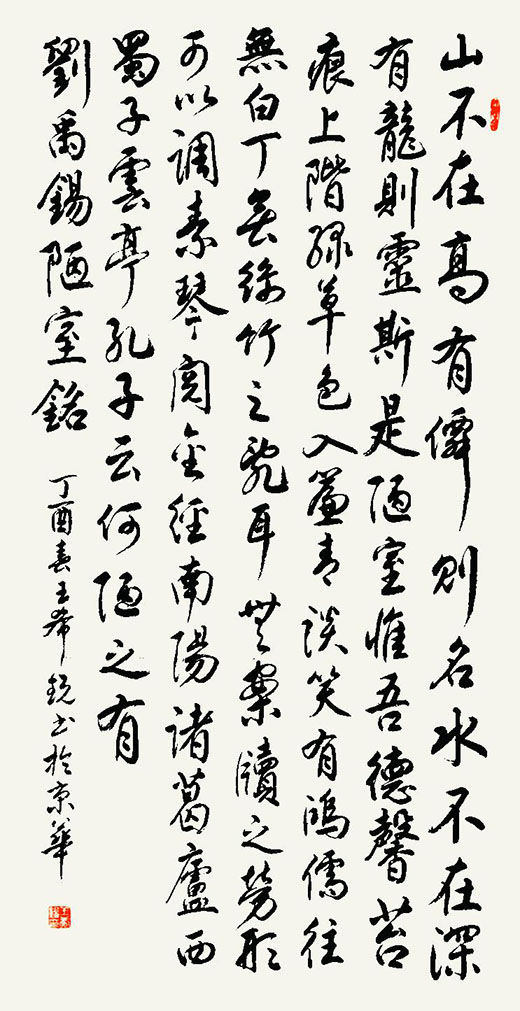 山不在高有僊則名水不在深
有龍則靈斯是陋室惟吾德馨苔
痕上階緑草色入簾青談笑有鴻儒往
無白丁無絲竹之亂耳無案牘之勞形
可以调素琴閲金經南陽諸葛廬西
蜀子雲亭孔子云何陋之有
劉禹錫陋室銘
丁酉春王希鋭书於京華